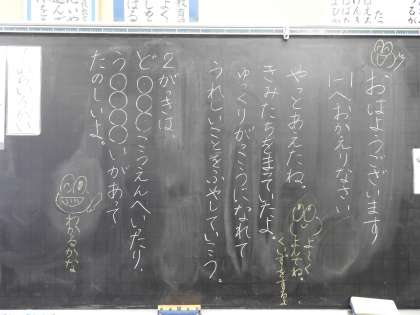 おはようございます
1-1へおかえりなさい
やっとあえたね。
きみたちをまっていたよ。
ゆっくりがっこうになれて
うれしいことをふやしていこう。
よーく
よんでね。
くいずをするよ
2がっきは、
ど〇〇〇こうえんへいったり、
う〇〇〇〇いがあって
たのしいよ。
わかるかな